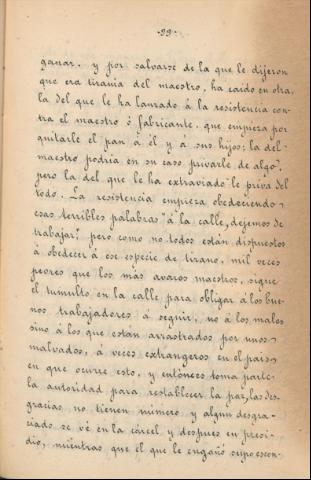 ·99·
ganar. y por salvarse de la que le dijeron
que era tirania del maestro, ha caido en otra,
la del que le ha lanzado á la resistencia con-
tra el maestro ó fabricante. que empieza por
quitarle el pan á él y a sus hijos; la del
maestro podria en su caso privarle de algo,
pero la del que le ha extraviado le priva del
todo. La resistencia empieza obedeciendo
esas terribles palabras "á la calle, dejemos de
trabajar," pero como no todos están dispuestos
á obedecer á ese especie de tirano, mil veces
peores que los más avaros maestros, sigue
el tumulto en la calle para obligar á los bue-
nos trabajadores á seguir, no á los malos
sino á los que están arrastrados por unos
malvados, á veces extrangeros en el pais
en que ocurre esto, y entonces toma parte
la autoridad para restablecer la paz, las des-
gracias no tienen número y algun desgra-
ciado se vé en la cárcel y despues en presi-
dio, mientras que el que le engañó supo escon-